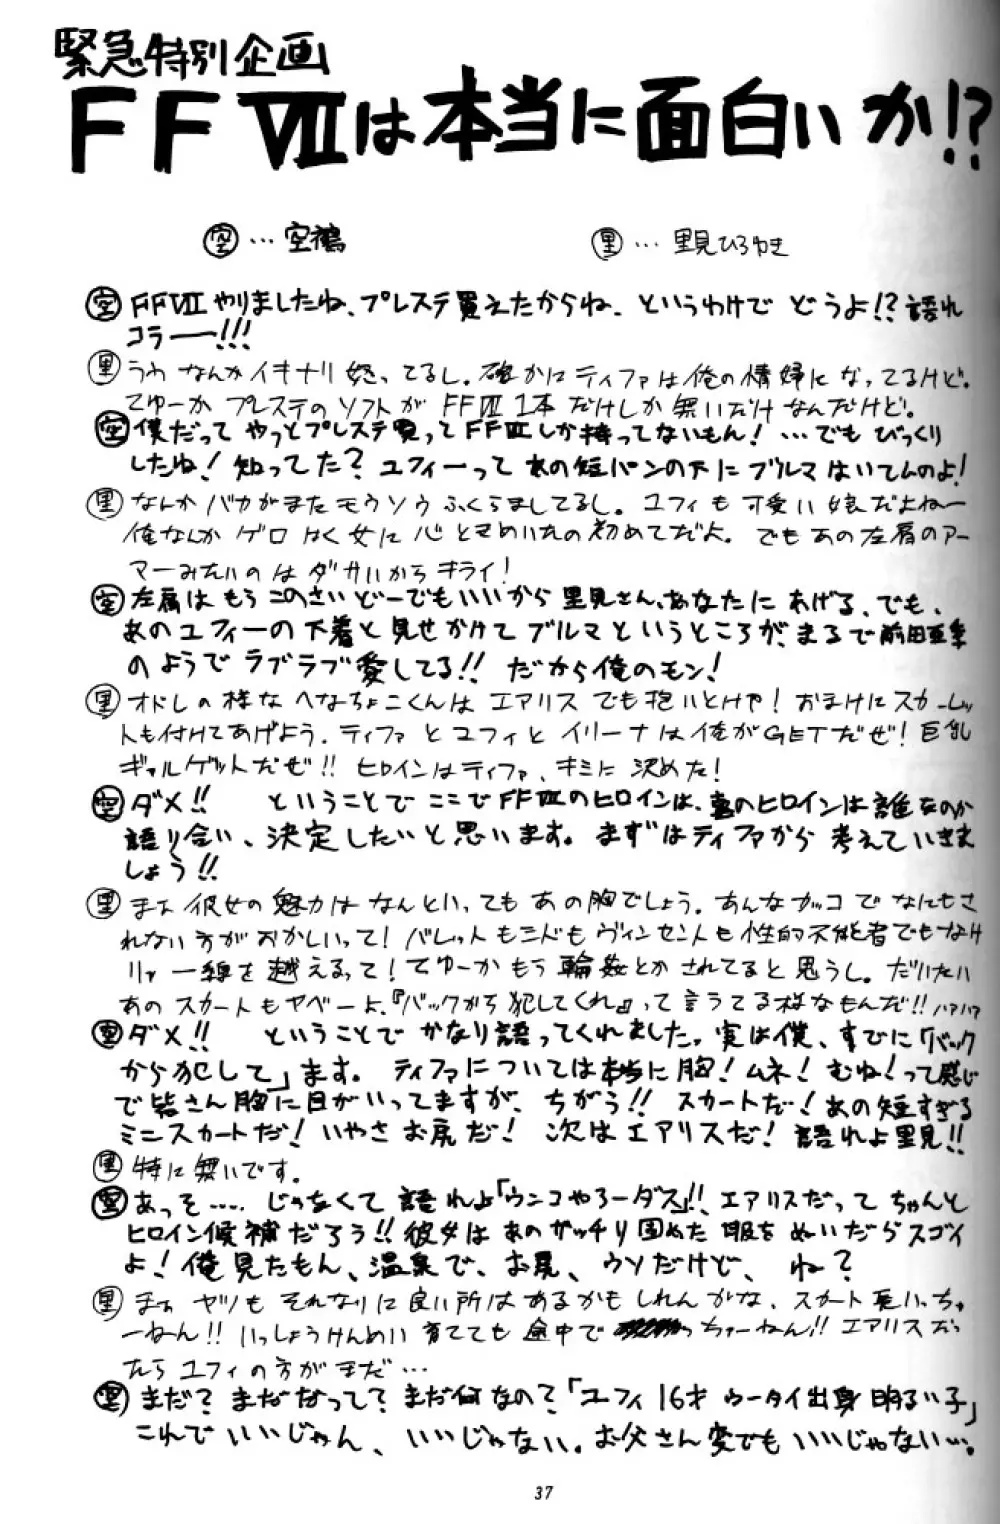 緊急特別企画
FFⅦは本当に面白いか!?
空…空鵺
里…里見ひろゆき
空 FFⅦやりましたね、プレステ買えたからね、というわけでどうよ!?語れ
コラーー!!!
里 うわ なんかイキナリ怒ってるし。確かにティファは俺の情婦になってるけど。
てゆーかプレステのソフトがFFⅦ1本だけしか無いだけなんだけど。
空 僕だってやっとプレステ買ってFFⅦしか持ってないもん!…でもびっくり
したね!知ってた?ユフィーってあの短パンの下にブルマはいてんのよ!
里 なんかバカがまたモウソウふくらましてるし。ユフィも可愛い娘だよねー
俺なんかゲロはく女に心ときめいたの初めてだよ。でもあの左肩のアー
マーみたいのはダサいからキライ!
空 左肩はもうこのさいどーでもいいから里見さん、あなたにあげる、でも、
あのユフィーの下着と見せかけてブルマというところが、まるで前田亜季
のようでラブラブ愛してる!!だから俺のモン!
里 オドしの様なへなちょこくんはエアリスでも抱いとけや!おまけにスカーレッ
トも付けてあげよう。ティファとユフィとイリーナは俺がGETだぜ!巨乳
ギャルゲットだぜ!!ヒロインはティファ、キミに決めた!
空 ダメ!! ということでここでFFⅦのヒロインは、真のヒロインは誰なのか
語り合い、決定したいと思います。まずはティファから考えていきま
しょう!!
里 まぁ彼女の魅力はなんといってもあの胸でしょう。あんなカッコでなにもさ
れない方がおかしいって!バレットもシドもヴィンセントも性的不能者でもなけ
りゃ一線を越えるって!てゆーかもう輪姦とかされてると思うし。だいたい
あのスカートもヤベーよ。『バックから犯してくれ』って言うてる様なもんだ!!ハァハァ
空 ダメ!! ということでかなり語ってくれました。実は僕、すでに「バック
から犯して」ます。ティファについては本当に胸!ムネ!むね!って感じ
で皆さん胸に目がいってますが、ちがう!!スカートだ!あの短すぎる
ミニスカートだ!いやさお尻だ!次はエアリスだ!語れよ里見!!
里 特に無いです。
空 あっそ…。じゃなくて語れよ「ウンコやろーダス」!!エアリスだってちゃんと
ヒロイン候補だろう!!彼女はあのガッチリ固めた服をぬいだらスゴイ
よ!俺見たもん、温泉で、お尻、ウソだけど、ね?
里 まぁヤツもそれなりに良い所はあるかもしれんがな、スカート長いっちゃ
ーねん!!いっしょうけんめい育てても途中で っちゃーねん!!エアリスだっ
たらユフィの方がまだ…
空 まだ?まだなって?まだ何なの?「ユフィ16才ウータイ出身明るい子」
これでいいじゃん、いいじゃない。お父さん変でもいいじゃない…。
37